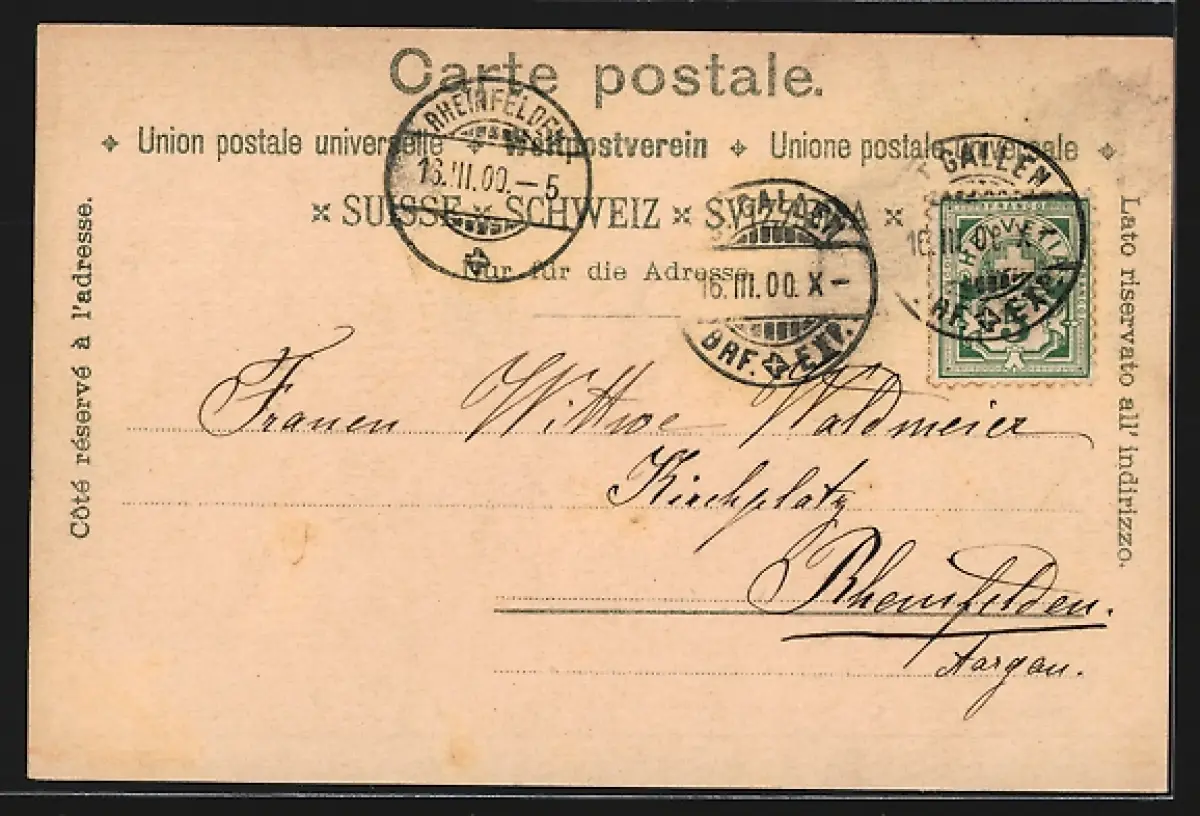 Carte postale.
Union postale universelle Weltpostverein Unione postale universale
SUISSE SCHWEIZ SVIZZERA
Nur für die Adresse.
Côté réservé à l'adresse.
Lato riservato all' indirizzo.
RHEINFELDEN
16.III.00.–5
GALLEN
16.III.00.X–
BRF. EXP.
GALLEN
16.III.00
BRF. EXP.
FRANCO
HELVETIA
5
Frauen Wittwe Waldmeier
Kirchplatz
Rheinfelden.
Aargau.